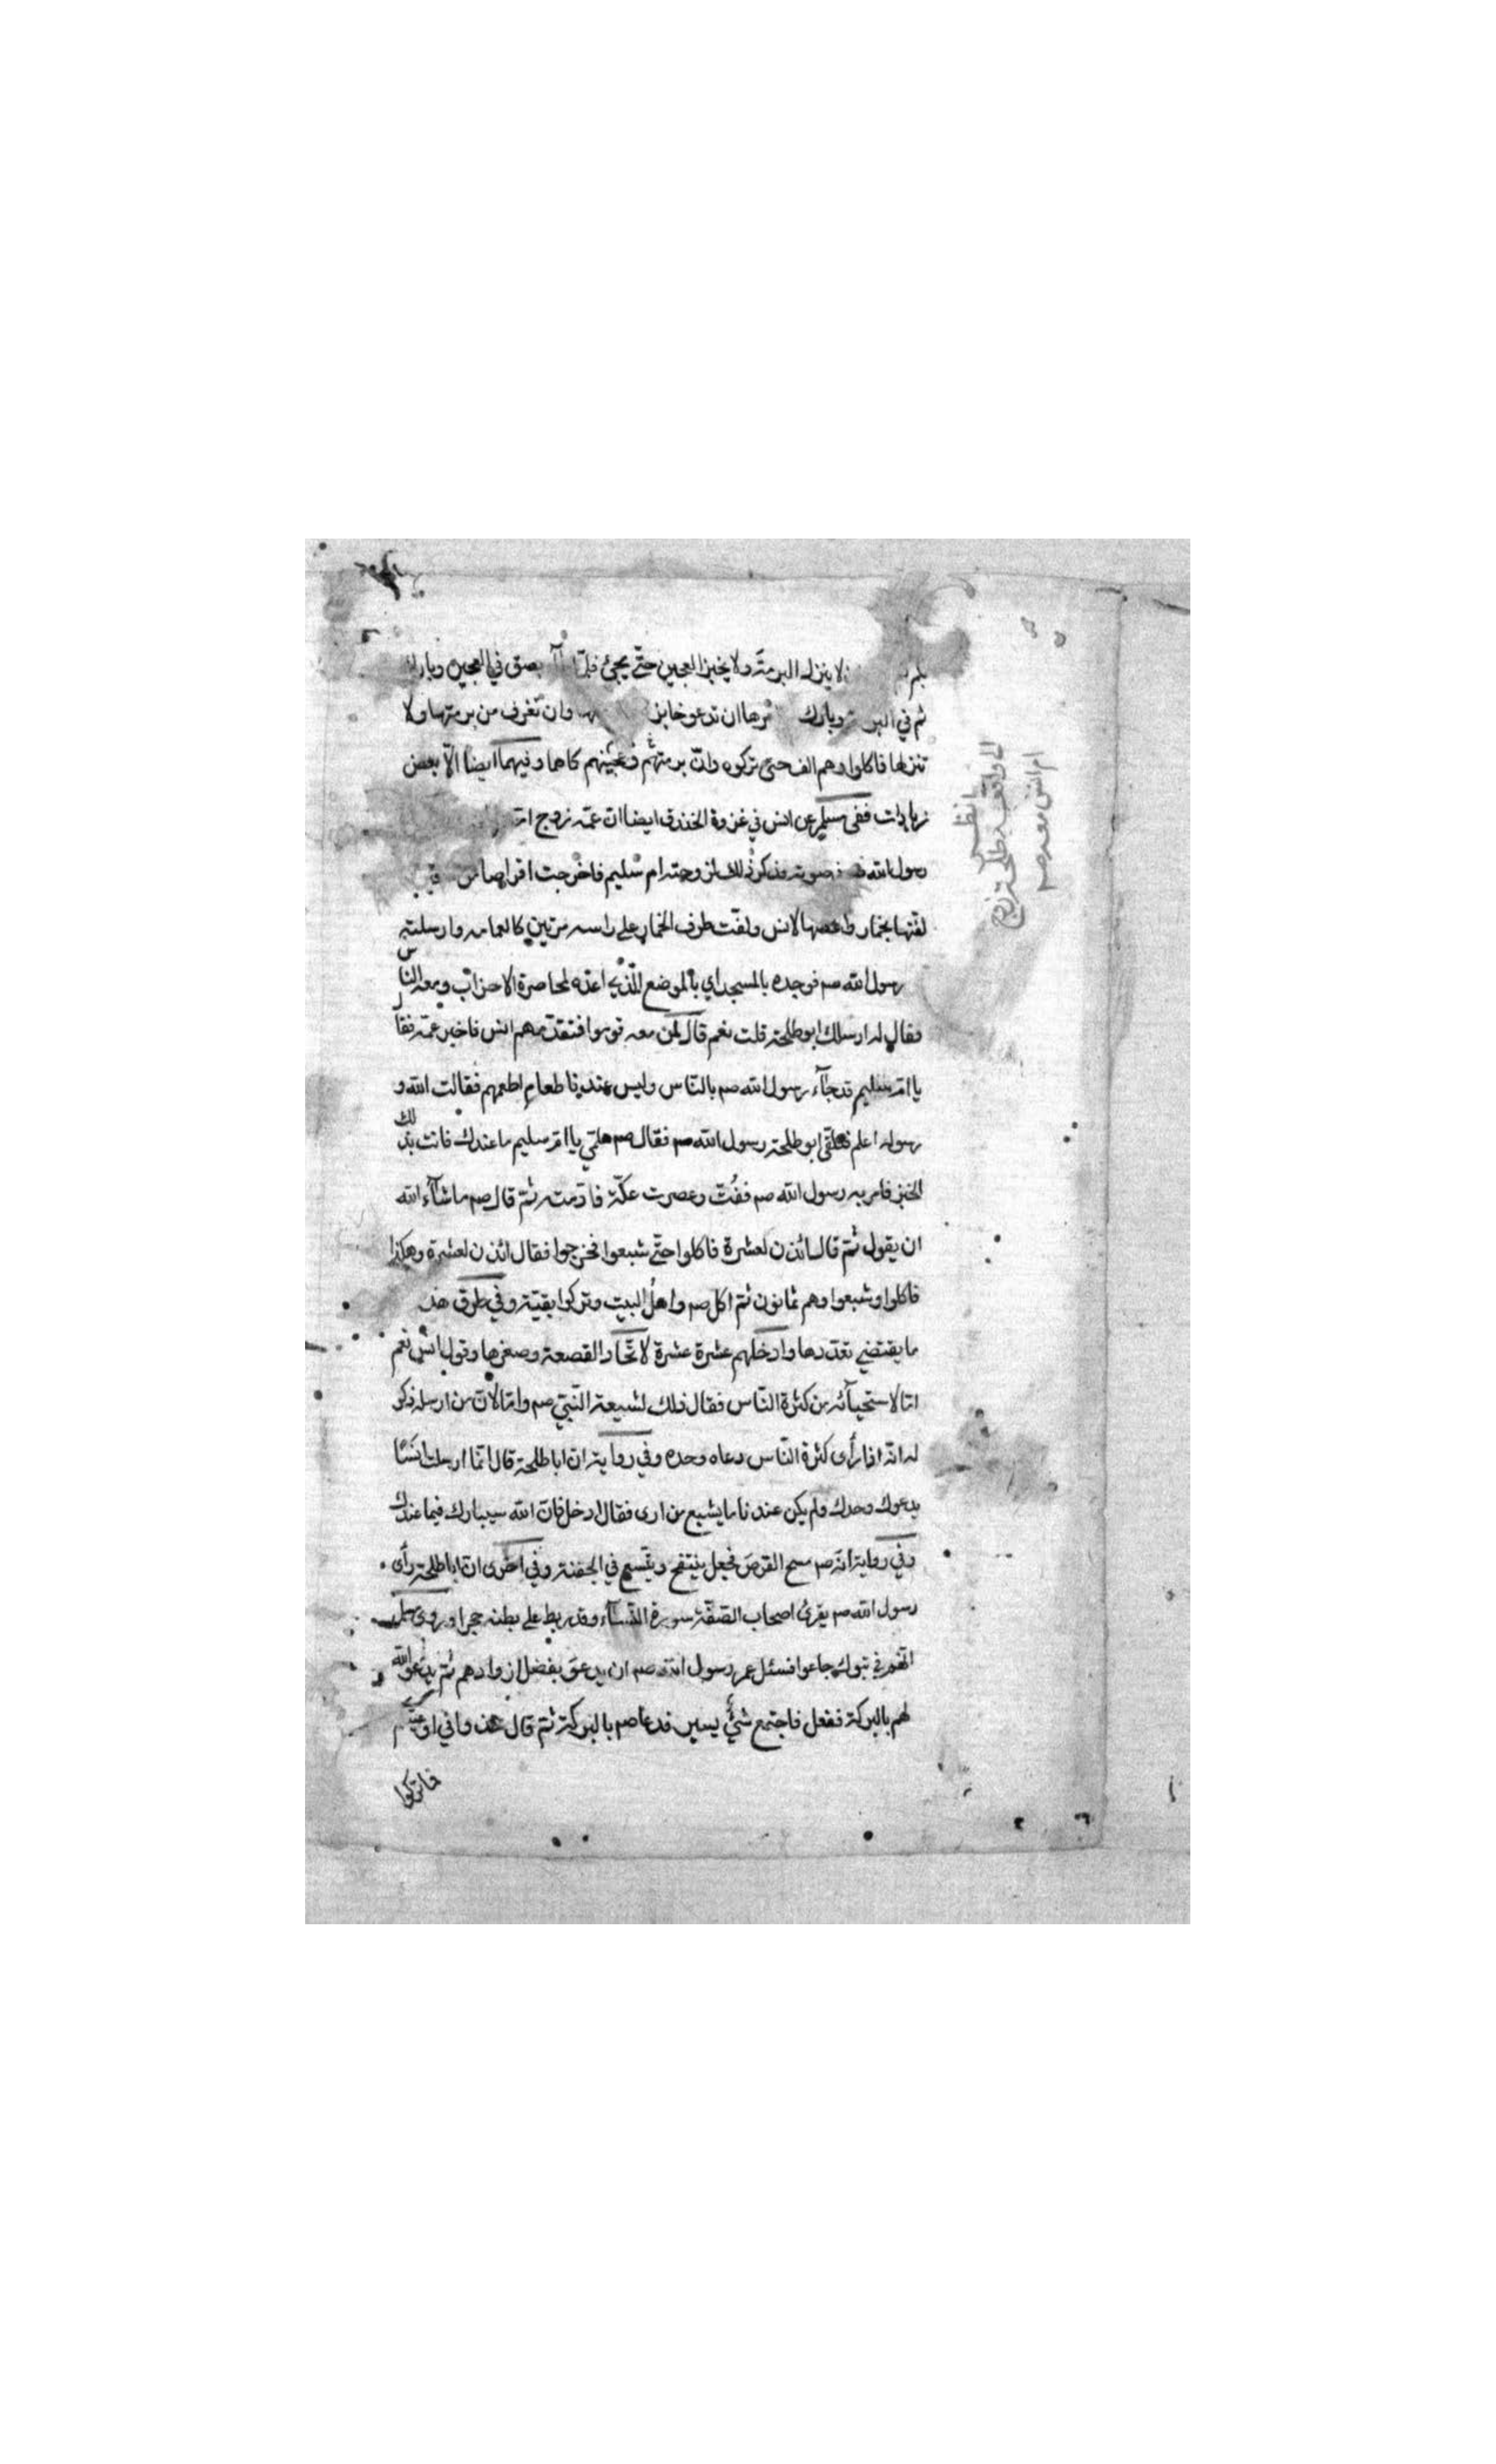 لا ينزل البرمة ولا يخبز العجين حتى يجئ فلمّا بصق في العجين وبارك
ثم في وبارك ان تدعو خابزة وان تغرف من برمتها ولا
تنزلها فاكلوا وهم الف حتى تركوه وانّ برمتهم وعجينهم كاهما وفيهما ايضا الّا بعض
زيادات ففي مسلم عن انس في غزوة الخندق ايضا ان عمّه زوج
رسول الله صوته فذكر ذلك لزوجته ام سليم فاخرجت اقراصا من
لفّتها بخمار واعطتها لانس ولفّت طرف الخمار على راسه مرتين كالعمامه وارسلته
رسول الله صم فوجده بالمسجد اي بالموضع الّذي اعدّه لمحاصرة الاحزاب ومعه الناس
فقال له ارسلك ابو طلحة قلت نعم قال لمن معه قوموا فتقدّمهم انس فاخبر عمّه فقال
يا امّ سليم قد جآء رسول الله صم بالنّاس وليس عندنا طعام اطعمهم فقالت الله و
رسوله اعلم فتلقى ابو طلحة رسول الله صم فقال صم هلمّي يا امّ سليم ما عندك فاتت بذلك
الخبز فامر به رسول الله صم ففُتّ وعصرت عكّة فادمته ثمّ قال صم ما شآء الله
ان يقول ثمّ قال ائذن لعشرة فاكلوا حتّى شبعوا فخرجوا فقال ائذن لعشرة وهكذا
فاكلوا وشبعوا وهم ثمانون ثمّ اكل صم واهل البيت وتركوا بقيّة وفي طرق هذه
ما يقتضي تعدّدها وادخلهم عشرة عشرة لاتّحاد القصعة وصغرها وقول انس نعم
امّا لاستحيآئه من كثرة النّاس فقال ذلك لشيعة النّبيّ صم وامّا لانّ من ارسله ذكر
له انّه اذا رأى كثرة النّاس دعاه وحده وفي رواية ان ابا طلحة قال انّما ارسلت انسًا
يدعوك وحدك ولم يكن عندنا ما يشبع من ارى فقال ادخل فانّ الله سيبارك فيما عندك
وفي رواية انّه صم مسح القرص فجعل ينتفخ ويتّسع في الجفنة وفي اخرى انّ ابا طلحة رأى
رسول الله صم يقرئ اصحاب الصّفّة سورة النّسآء وقد ربط على بطنه حجرا وروى مسلم
انّهم في تبوك جاعوا فسئل عمر رسول الله صم ان يدعو بفضل ازوادهم ثمّ يدعو الله
لهم بالبركة ففعل فاجتمع شئ يسير فدعا صم بالبركة ثمّ قال خذوا في اوعيتكم
فما تركوا
ام انس معه صم